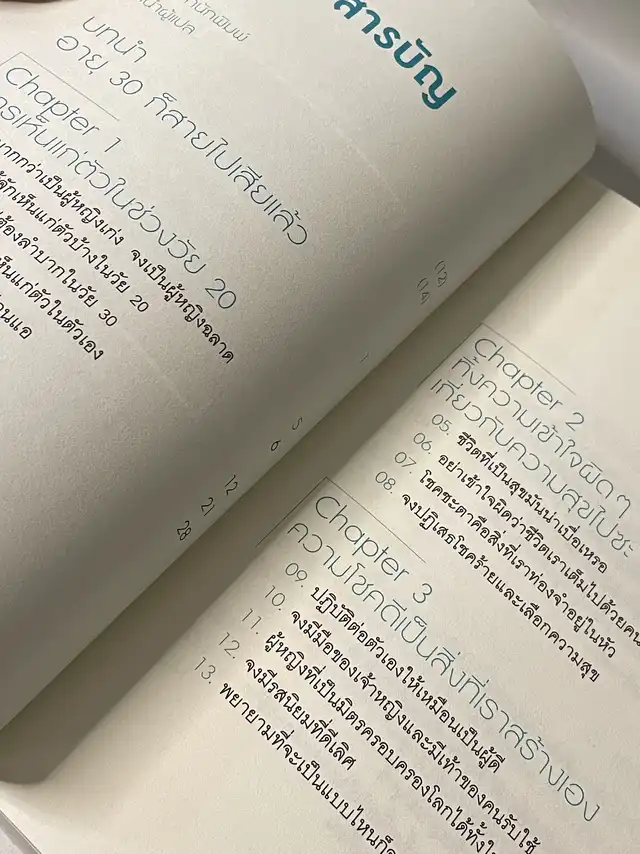 สารบัญ
บทนำ
อายุ 30 ก็สายไปเสียแล้ว
(12)
(14)
Chapter 1
เห็นแก่ตัวในช่วงวัย 20
1
มากกว่าเป็นผู้หญิงเก่ง จงเป็นผู้หญิงฉลาด
5
เห็นแก่ตัวบ้างในวัย 20
6
ต้องลำบากในวัย 30
12
เห็นแก่ตัวในตัวเอง
21
28
Chapter 2
ทิ้งความเข้าใจผิดๆ
เกี่ยวกับความสุขไปซะ
05. ชีวิตที่เป็นสุขมันน่าเบื่อเหรอ
06. อย่าเข้าใจผิดว่าชีวิตเราเต็มไปด้วย
07. โชคชะตาคือสิ่งที่เราท่องจำอยู่ในหัว
08. จงปฏิเสธโชคร้ายและเลือกความสุข
Chapter 3
ความโชคดีเป็นสิ่งที่เราสร้างเอง
09. ปฏิบัติต่อตัวเองให้เหมือนเป็นผู้ดี
10. จงมีมือของเจ้าหญิงและมีเท้าของคนรับใช้
11. ผู้หญิงที่เป็นมิตรครอบครองโลกได้ทั้ง
12. จงมีรสนิยมที่ดีเลิศ
13. พยายามที่จะเป็นแบบไหนก็